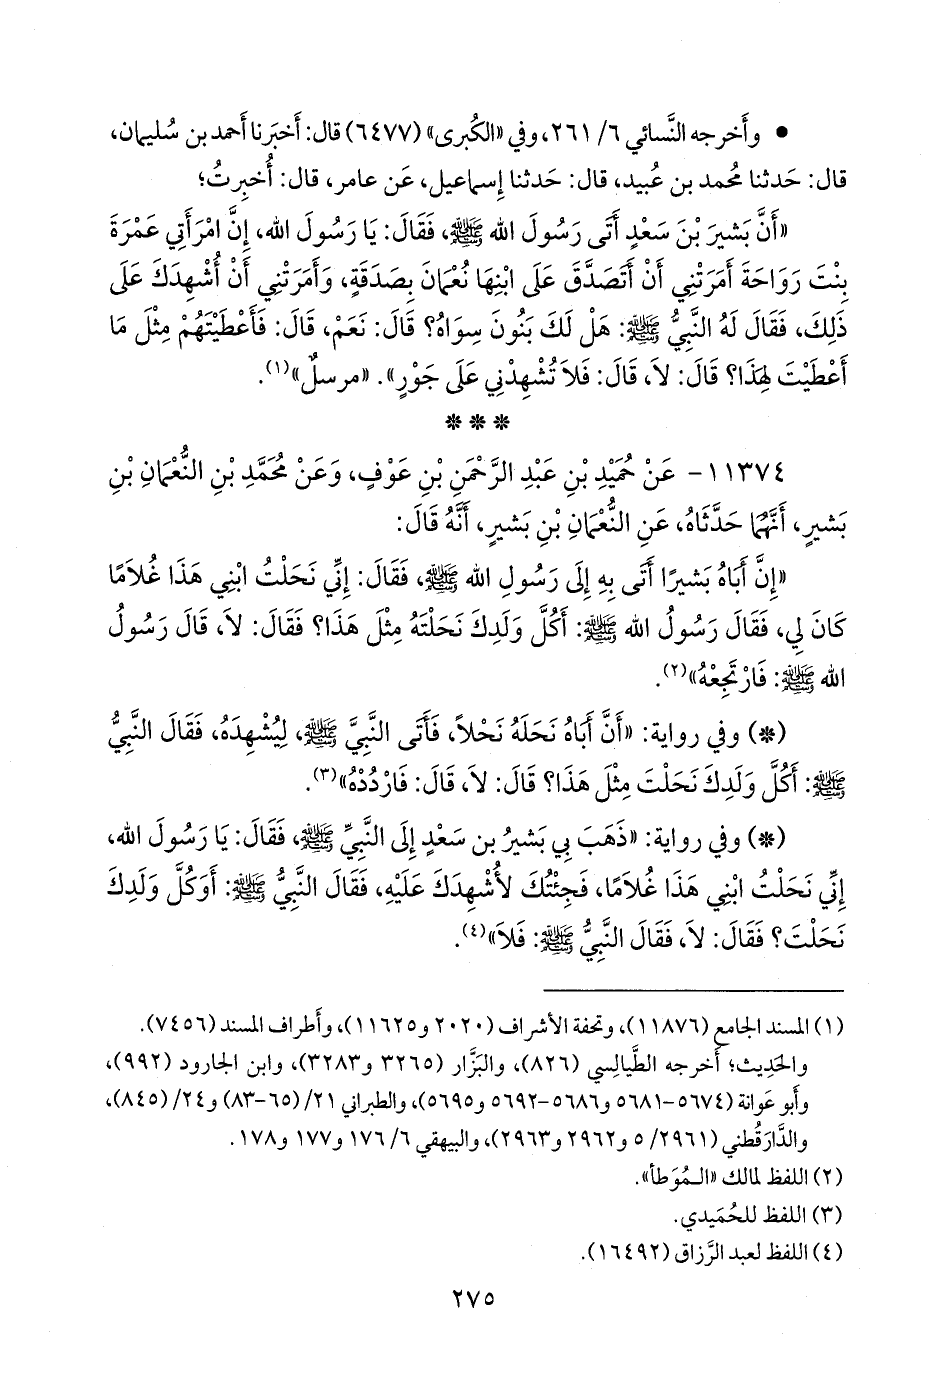 • وأَخرجه النَّسائي ٦/ ٢٦١، وفي «الكُبرى» (٦٤٧٧) قال: أَخبَرنا أَحمد بن سُليمان،
قال: حَدثنا مُحمد بن عُبيد، قال: حَدثنا إِسماعيل، عَن عامر، قال: أُخبِرتُ؛
«أَنَّ بَشِيرَ بْنَ سَعْدٍ أَتَى رَسُولَ الله ﷺ، فَقَالَ: يَا رَسُولَ الله، إِنَّ امْرَأَتِي عَمْرَةَ
بِنْتَ رَوَاحَةَ أَمَرَتْنِي أَنْ أَتَصَدَّقَ عَلَى ابْنِهَا نُعْمَانَ بِصَدَقَةٍ، وَأَمَرَتْنِي أَنْ أُشْهِدَكَ عَلَى
ذَلِكَ، فَقَالَ لَهُ النَّبِيُّ ﷺ: هَلْ لَكَ بَنُونَ سِوَاهُ؟ قَالَ: نَعَمْ، قَالَ: فَأَعْطَيْتَهُمْ مِثْلَ مَا
أَعْطَيْتَ لِهَذَا؟ قَالَ: لاَ، قَالَ: فَلاَ تُشْهِدْنِي عَلَى جَوْرٍ». «مرسلٌ»(١).
* * *
١١٣٧٤- عَنْ حُمَيْدِ بْنِ عَبْدِ الرَّحْمَنِ بْنِ عَوْفٍ، وَعَنْ مُحَمَّدِ بْنِ النُّعْمَانِ بْنِ
بَشِيرٍ، أَنَّهُمَا حَدَّثَاهُ، عَنِ النُّعْمَانِ بْنِ بَشِيرٍ، أَنَّهُ قَالَ:
«إِنَّ أَبَاهُ بَشِيرًا أَتَى بِهِ إِلَى رَسُولِ الله ﷺ، فَقَالَ: إِنِّي نَحَلْتُ ابْنِي هَذَا غُلاَمًا
كَانَ لِي، فَقَالَ رَسُولُ الله ﷺ: أَكُلَّ وَلَدِكَ نَحَلْتَهُ مِثْلَ هَذَا؟ فَقَالَ: لاَ، قَالَ رَسُولُ
الله ﷺ: فَارْتَجِعْهُ»(٢).
(*) وفي رواية: «أَنَّ أَبَاهُ نَحَلَهُ نَحْلاً، فَأَتَى النَّبِيَّ ﷺ، لِيُشْهِدَهُ، فَقَالَ النَّبِيُّ
ﷺ: أَكُلَّ وَلَدِكَ نَحَلْتَ مِثْلَ هَذَا؟ قَالَ: لاَ، قَالَ: فَارْدُدْهُ»(٣).
(*) وفي رواية: «ذَهَبَ بِي بَشِيرُ بن سَعْدٍ إِلَى النَّبِيِّ ﷺ، فَقَالَ: يَا رَسُولَ الله،
إِنِّي نَحَلْتُ ابْنِي هَذَا غُلاَمًا، فَجِئْتُكَ لأُشْهِدَكَ عَلَيْهِ، فَقَالَ النَّبِيُّ ﷺ: أَوَكُلَّ وَلَدِكَ
نَحَلْتَ؟ فَقَالَ: لاَ، فَقَالَ النَّبِيُّ ﷺ: فَلاَ»(٤).
(١) المسند الجامع (١١٨٧٦)، وتحفة الأشراف (٢٠٢٠ و١١٦٢٥)، وأَطراف المسند (٧٤٥٦).
والحَدِيث؛ أَخرجه الطَّيالِسي (٨٢٦)، والبَزَّار (٣٢٦٥ و٣٢٨٣)، وابن الجارود (٩٩٢)،
وأَبو عَوانة (٥٦٧٤-٥٦٨١ و٥٦٨٦-٥٦٩٢ و٥٦٩٥)، والطبراني ٢١/ (٦٥-٨٣) و٢٤/ (٨٤٥)،
والدَّارَقُطني (٢٩٦١/ ٥ و٢٩٦٢ و٢٩٦٣)، والبيهقي ٦/ ١٧٦ و١٧٧ و١٧٨.
(٢) اللفظ لمالك «المُوَطأ».
(٣) اللفظ للحُمَيدي.
(٤) اللفظ لعبد الرَّزاق (١٦٤٩٢).
٢٧٥